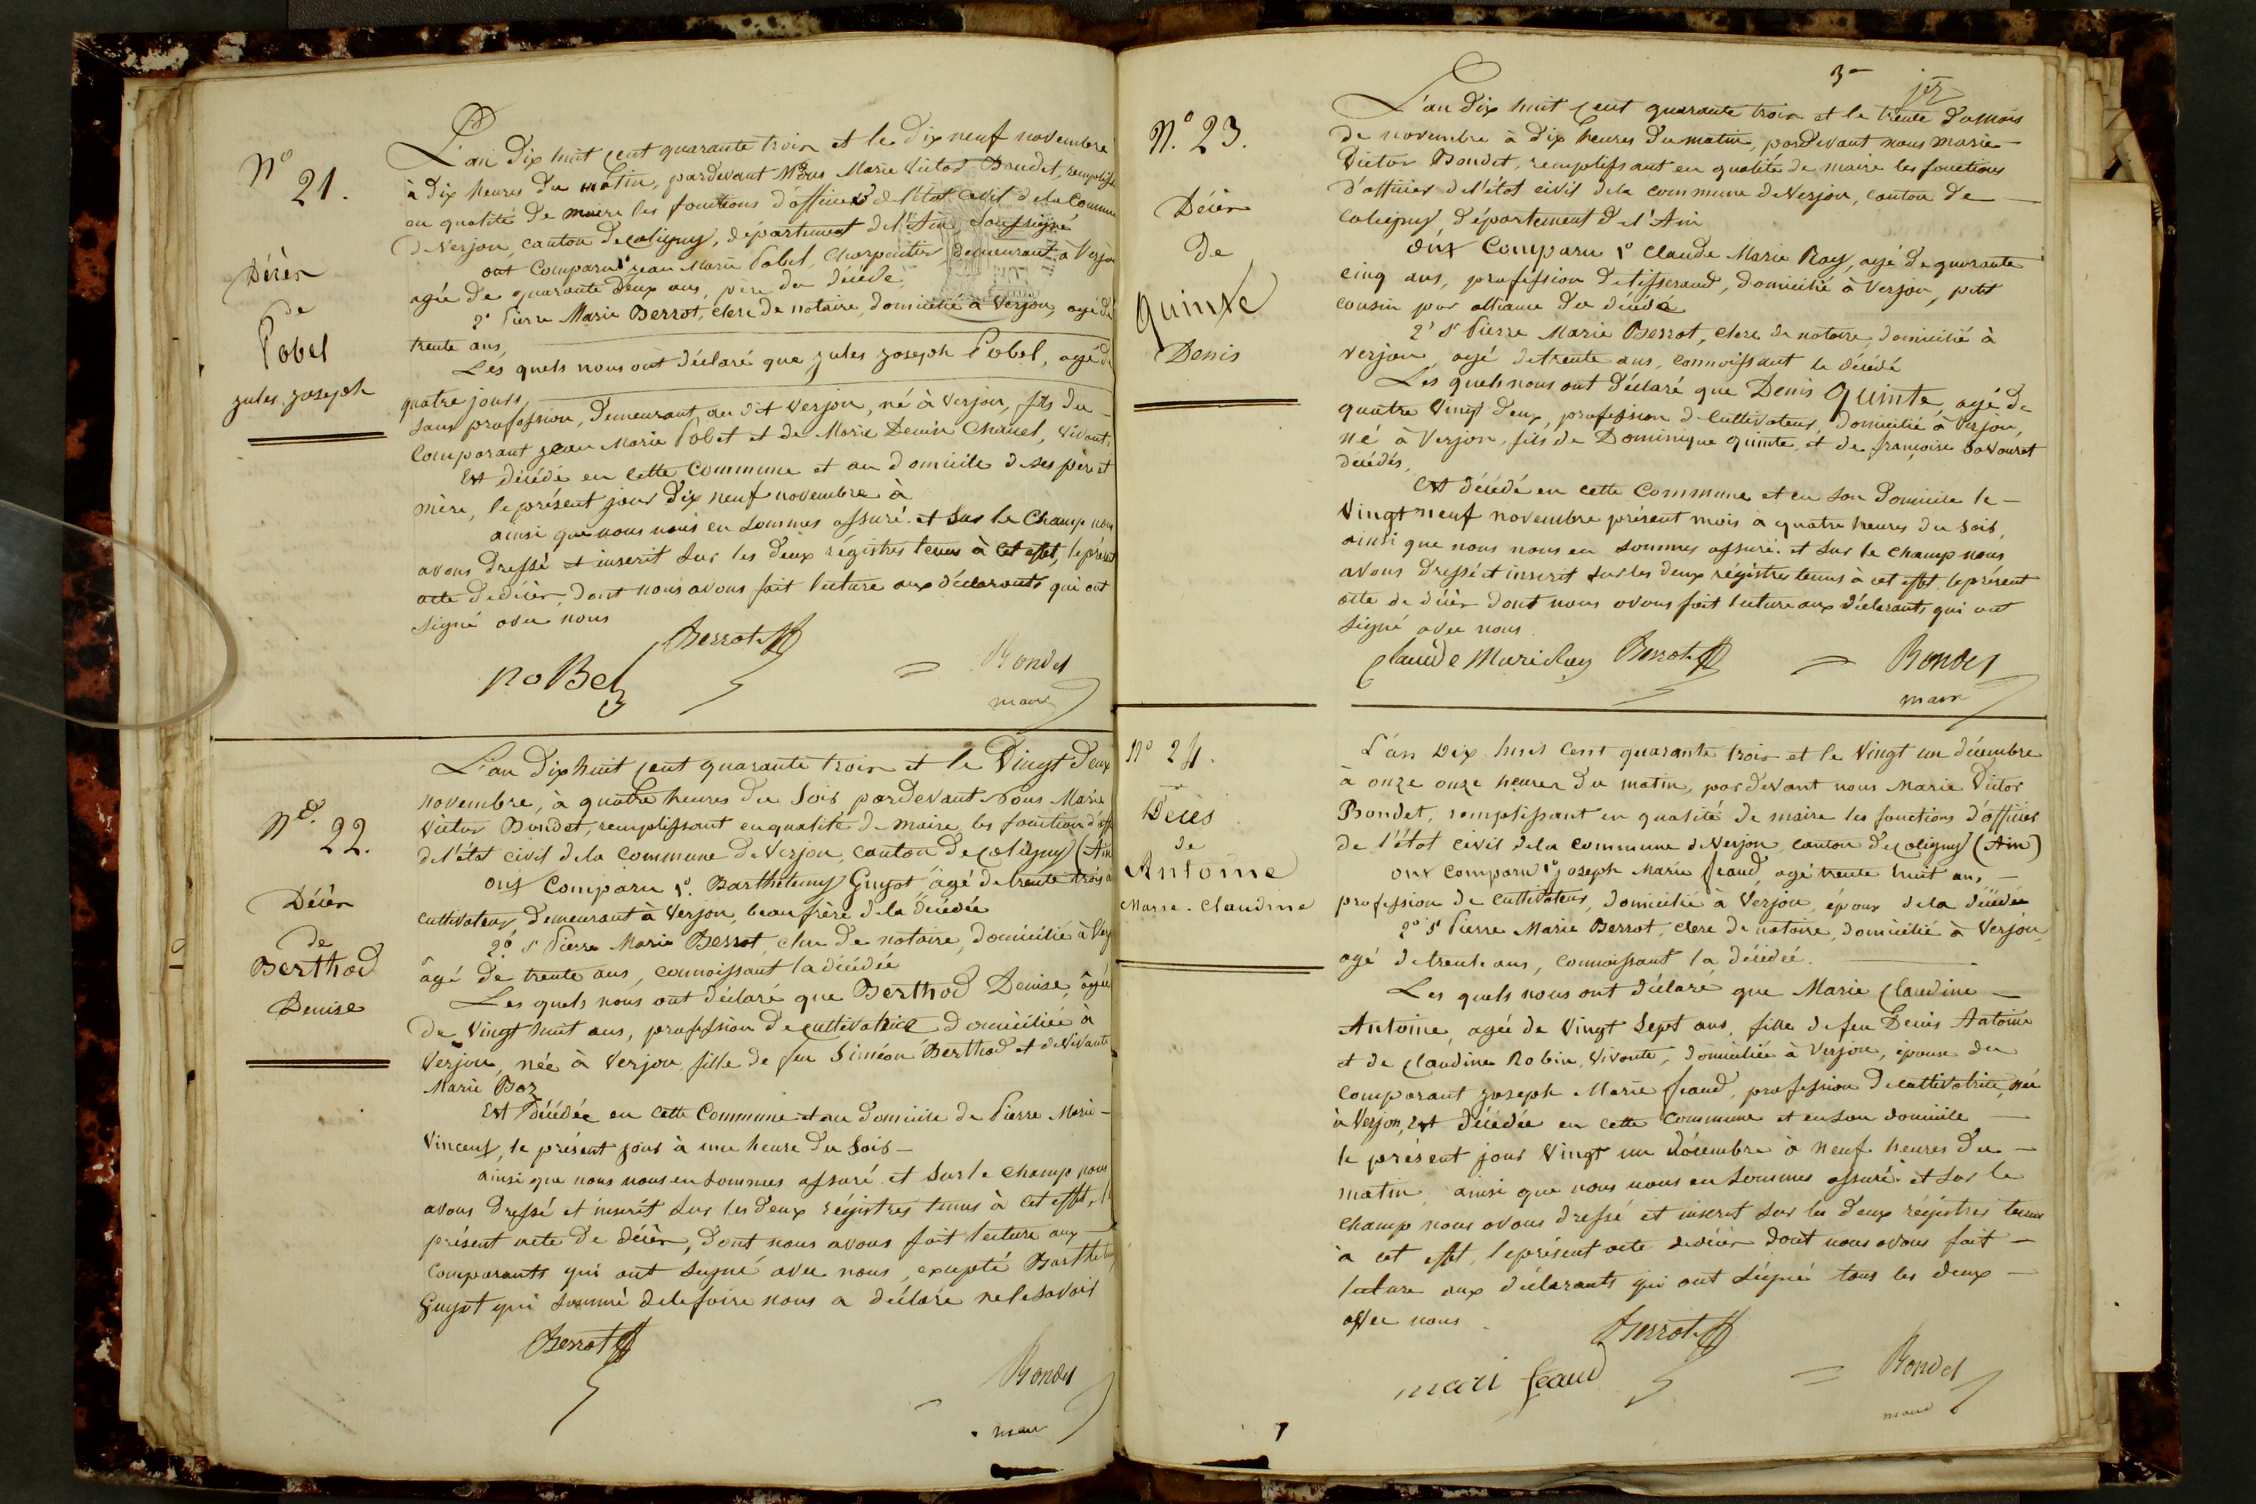 N° 21.
Décès
de
Pobel
jules joseph
L'an dix huit cent quarante trois et le dix neuf novembre
à dix heures du matin, pardevant Nous Marie Victor Bondet, remplissant
en qualité de maire les fonctions d'officier de l'état civil de la Commune
de Verjon, canton de coligny, département de l'Ain soussigné
ont Comparu 1° jean Marie Pobel, Charpentier, demeurant à Verjon
agée de quarante deux ans, père du décédé,
2° Pierre Marie Berrot, clerc de notaire, domicilié à Verjon, agé de
trente ans,
Les quels nous ont déclaré que jules joseph Pobel, agé de
quatre jours,
sans profession, demeurant au dit Verjon, né à Verjon, fils du
Comparant jean Marie Pobel et de Marie Denise Chanel, vivants
Est décédé en cette Commune et au domicile de ses père et
mère, le présent jour dix neuf novembre à
ainsi que nous nous en sommes assuré. et sur le Champ nous
avons dressé et inscrit sur les deux régistres tenus à cet effet, le présent
acte de décès, dont nous avons fait lecture aux déclarants qui ont
signé avec nous
Berrot
poBel
Bondet
maire
N° 22.
Décès
de
Berthod
Denise
L'an dix huit cent quarante trois et le Vingt deux
novembre, à quatre heures du soir, pardevant Nous Marie
Victor Bondet, remplissant en qualité de maire les fonction d'off
de l'état civil de la Commune de Verjon, canton de Coligny (Ain
ont Comparu 1°. Barthelemy Guyot, agé de trente trois a
cultivateur, demeurant à Verjon, beau frère de la décédée
2° sr Pierre Marie Berrot, clerc de notaire, domicilié à Verj
âgé de trente ans, connoissant la décédée
Les quels nous ont déclaré que Berthod Denise, âgée
de Vingt huit ans, profession de cultivatrice domiciliée à
Verjon, née à Verjon, fille de feu Siméon Berthod et de Vivante
Marie Boz
Est décédée en cette Commune et au domicile de Pierre Marie
Vincent, le présent jour à une heure du soir
ainsi que nous nous en sommes assuré et sur le champ nous
avons dressé et inscrit sur les deux régistres tenus à cet effet, le
présent acte de décès, dont nous avons fait lecture aux
Comparants qui ont signé avec nous, excepté Barthelemy
Guyot qui sommé de le faire nous a déclaré ne le savoir
Berrot
Bondet
maire
3
N° 23.
Décès
de
quinte
Denis
L'an dix huit cent quarante trois et le trente du mois
de novembre à dix heures du matin, pardevant nous marie
Victor Bondet, remplissant en qualité de maire les fonctions
d'officier de l'état civil de la commune de Verjon, canton de
coligny, département de l'Ain
ont Comparu 1° Claude Marie Ray, agé de quarante
cinq ans, profession de tisserand, domicilié à Verjon, petit
cousin par alliance du décédé
2° sr Pierre Marie Berrot, clerc de notaire domicilié à
verjon, agé de trente ans, connoissant le décédé
Les quels nous ont déclaré que Denis quinte, agé de
quatre Vingt deux, profession de Cultivateur, domicilié à Verjon,
né à Verjon, fils de Dominique quinte, et de françoise
décédés,
Est décédé en cette Commune et en son domicile le
Vingt neuf novembre présent mois à quatre heures du soir,
ainsi que nous nous en sommes assuré. et sur le champ nous
avons dressé et inscrit sur les deux régistres tenus à cet effet, le présent
acte de décès dont nous avons fait lecture aux déclarants qui ont
signé avec nous
Claude Marie Ray Berrot
Bondet
maire
N° 24.
Décès
de
Antoine
Marie-Claudine
L'an Dix huit Cent quarante trois et le Vingt un décembre
à onze onze heures du matin, pardevant nous Marie Victor
Bondet, remplissant en qualité de maire les fonctions d'officier
de l'état civil de la commune de Verjon canton de Coligny (Ain)
ont comparu 1° joseph Marie feaud, agé trente huit ans,
profession de cultivateur, domicilié à Verjon, époux de la décédée
2° sr Pierre Marie Berrot, clerc de notaire, domicilié à Verjon,
agé de trente ans, connaissant la décédée.
Les quels nous ont déclaré que Marie Claudine
Antoine, agée de Vingt sept ans, fille de feu Denis Antoine
et de Claudine Robin, vivante, domiciliée à Verjon, épouse du
comparant joseph Marie feaud, profession de cultivatrice, née
à Verjon, Est décédée en cette commune et en son domicile
le présent jour Vingt un décembre à neuf heures du
matin ainsi que nous nous en sommes assuré. et sur le
champ nous avons dressé et inscrit sur les deux régistres tenus
à cet effet, le présent acte de décès dont nous avons fait
lecture aux déclarants qui ont signé tous les deux
avec nous
Berrot
mari feaud
Bondet
maire